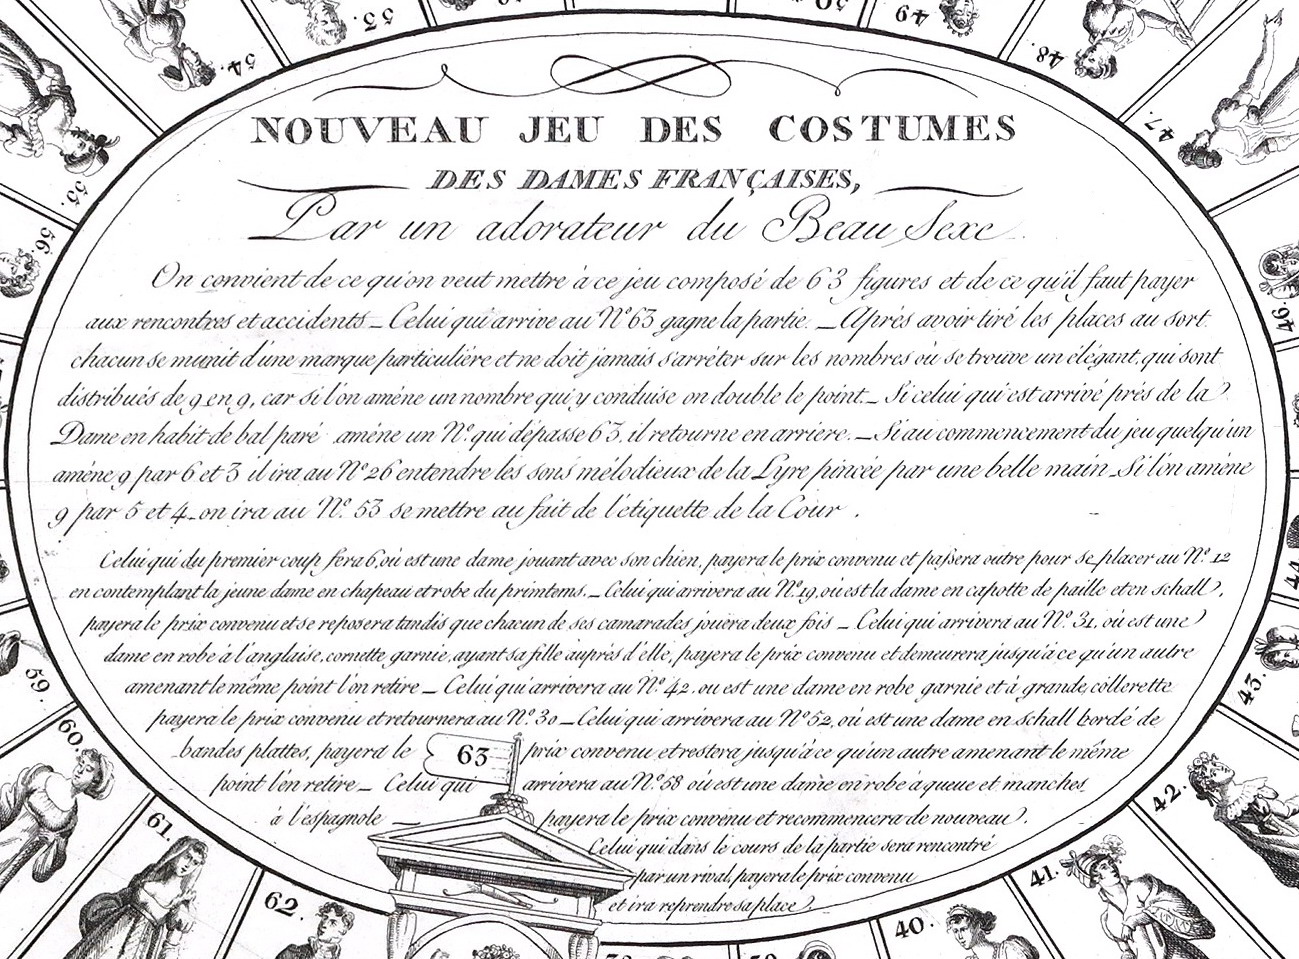 NOUVEAU JEU DES COSTUMES
DES DAMES FRANÇAISES,
Par un adorateur du Beau Sexe
On convient de ce qu'on veut mettre à ce jeu composé de 63 figures et de ce qu'il faut payer
aux rencontres et accidents _ Celui qui arrive au Nº 63 gagne la partie. _ Après avoir tiré les places au sort
chacun se munit d'une marque particulière et ne doit jamais s'arrêter sur les nombres où se trouve un élégant, qui sont
distribués de 9 en 9, car si l'on amène un nombre qui y conduise on double le point _ Si celui qui est arrivé près de la
Dame en habit de bal paré amène un Nº qui dépasse 63, il retourne en arriere. _ Si au commencement du jeu quelqu'un
amène 9 par 6 et 3 il ira au Nº 26 entendre les sons mélodieux de la Lyre pincée par une belle main _ Si l'on amène
9 par 5 et 4 on ira au Nº 53 se mettre au fait de l'étiquette de la Cour.
Celui qui du premier coup fera 6, où est une dame jouant avec son chien, payera le prix convenu et passera outre pour se placer au Nº 12
en contemplant la jeune dame en chapeau et robe du printems. _ Celui qui arrivera au Nº 19, où est la dame en capotte de paille et en schall,
payera le prix convenu et se reposera tandis que chacun de ses camarades jouera deux fois _ Celui qui arrivera au Nº 31, où est une
dame en robe à l'anglaise, cornette garnie, ayant sa fille auprès d'elle, payera le prix convenu et demeurera jusqu'à ce qu'un autre
amenant le même point l'on retire _ Celui qui arrivera au Nº 42, ou est une dame en robe garnie et à grande collerette
payera le prix convenu et retournera au Nº 30 _ Celui qui arrivera au Nº 52, où est une dame en schall bordé de
bandes plattes, payera le prix convenu et restera jusqu'à ce qu'un autre amenant le même
point l'en retire _ Celui qui arrivera au Nº 58 où est une dame en robe à queue et manches
à l'espagnole _ payera le prix convenu et recommencera de nouveau.
Celui qui dans le cours de la partie sera rencontré
par un rival, payera le prix convenu
et ira reprendre sa place
63
40.
41.
42.
43.
44
46
47.
48.
49
50
53.
54.
55.
56.
59.
60.
61.
62.